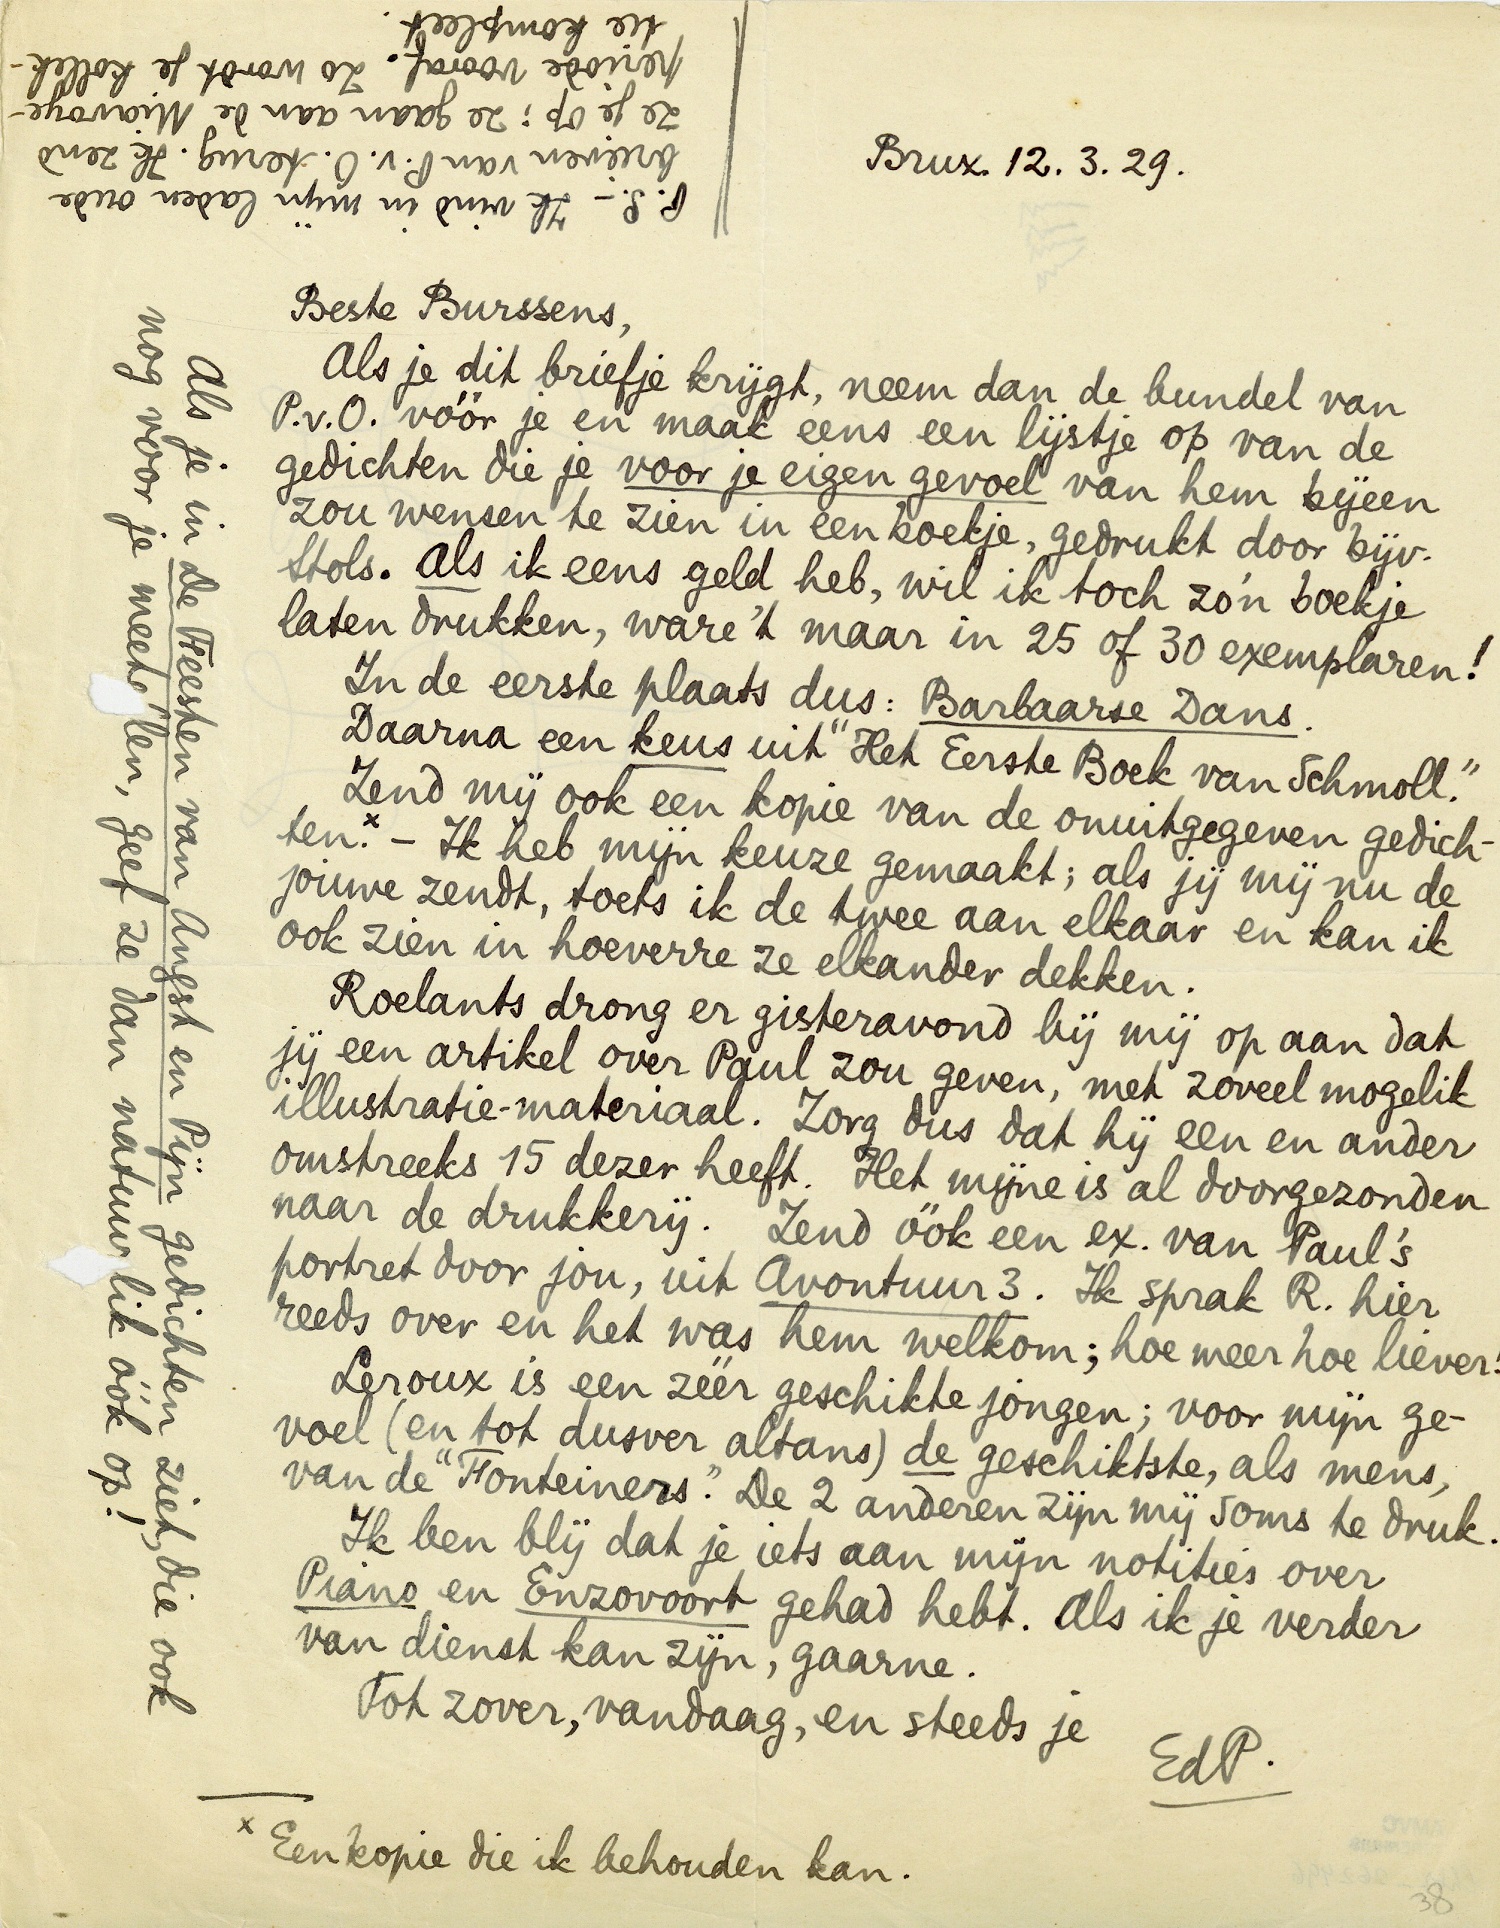 Brux. 12. 3. 29.
Beste Burssens,
Als je dit briefje krijgt, neem dan de bundel van
P.v.O. vóór je en maak eens een lijstje op van de
gedichten die je voor je eigen gevoel van hem bijeen
zou wensen te zien in een boekje, gedrukt door bijv.
Stols. Als ik eens geld heb, wil ik toch zo'n boekje
laten drukken, ware 't maar in 25 of 30 exemplaren!
In de eerste plaats dus: Barbaarse Dans.
Daarna een keus uit "Het Eerste Boek van Schmoll."
Zend mij ook een kopie van de onuitgegeven gedich-
ten.x – Ik heb mijn keuze gemaakt; als jij mij nu de
jouwe zendt, toets ik de twee aan elkaar en kan ik
ook zien in hoeverre ze elkander dekken.
Roelants drong er gisteravond bij mij op aan dat
jij een artikel over Paul zou geven, met zoveel mogelik
illustratie-materiaal. Zorg dus dat hij een en ander
omstreeks 15 dezer heeft. Het mijne is al doorgezonden
naar de drukkerij. Zend óók een ex. van Paul's
portret door jou, uit Avontuur 3. Ik sprak R. hier
reeds over en het was hem welkom; hoe meer hoe liever!
Leroux is een zéér geschikte jongen; voor mijn ge-
voel (en tot dusver altans) de geschiktste, als mens,
van de "Fonteiners". De 2 anderen zijn mij soms te druk.
Ik ben blij dat je iets aan mijn notities over
Piano en Enzovoort gehad hebt. Als ik je verder
van dienst kan zijn, gaarne.
Tot zover, vandaag, en steeds je
EdP.
x Een kopie die ik behouden kan.
Als je in De Feesten van Angst en Pijn gedichten ziet, die ook
nog voor je meetellen, geef ze dan natuurlik óók op!
P.S. – Ik vind in mijn laden oude
brieven van P.v.O. terug. Ik zend
ze je op; ze gaan aan de Miavoye-
periode vooraf. Zo wordt je kollek-
tie kompleet.
38